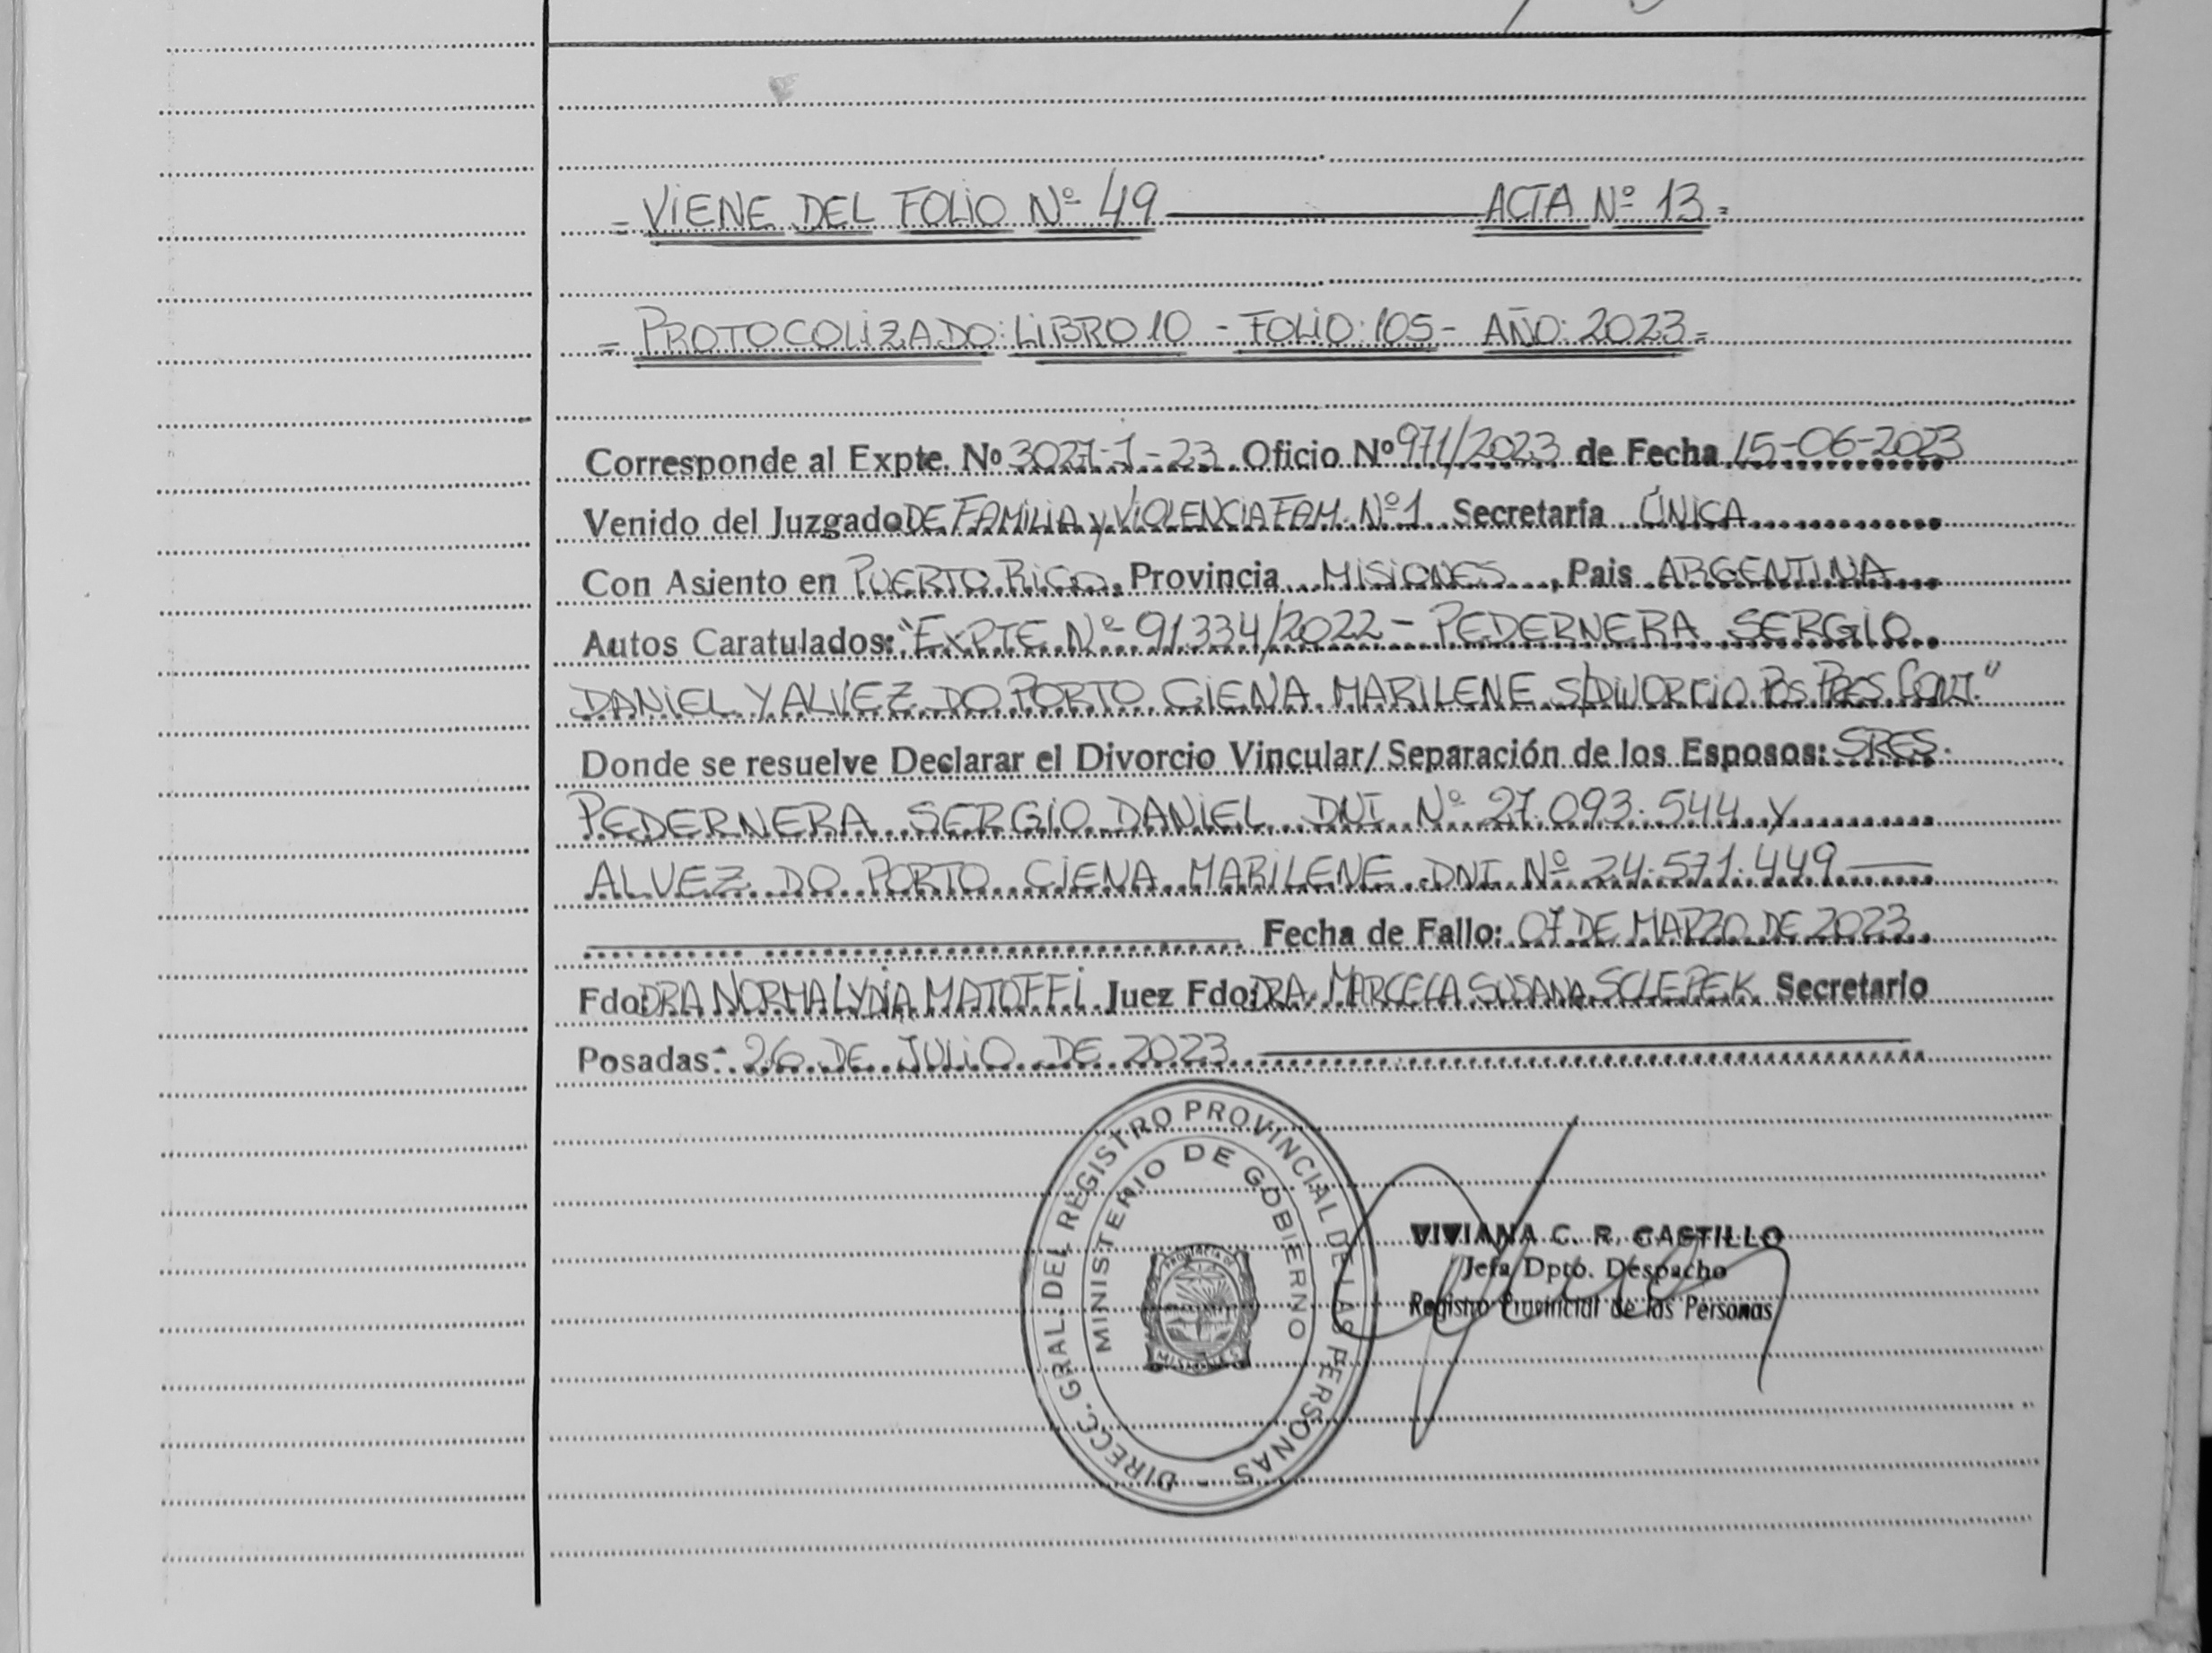 = VIENE DEL FOLIO Nº 49 ACTA Nº 13 =
= PROTOCOLIZADO: LIBRO 10 - FOLIO: 105 - AÑO: 2023 =
Corresponde al Expte. Nº 3027-J-23 Oficio Nº 971/2023 de Fecha 15-06-2023
Venido del Juzgado DE FAMILIA y VIOLENCIA FAM. Nº 1 Secretaría ÚNICA
Con Asiento en PUERTO RICO, Provincia MISIONES, Pais ARGENTINA
Autos Caratulados: "EXPTE Nº 91334/2022 - PEDERNERA SERGIO
DANIEL Y ALVEZ DO PORTO CIENA MARILENE S/DIVORCIO POS PRES. CONJ."
Donde se resuelve Declarar el Divorcio Vincular/ Separación de los Esposos: SRES.
PEDERNERA SERGIO DANIEL DNI Nº 27.093.544 y
ALVEZ DO PORTO CIENA MARILENE DNI Nº 24.571.449
Fecha de Fallo: 07 DE MARZO DE 2023
Fdo: DRA NORMA LYDIA MATOFFI Juez Fdo: DRA. MARCELA SUSANA SCLEPEK Secretario
Posadas: 26 DE JULIO DE 2023
DIRECC. GRAL. DEL REGISTRO PROVINCIAL DE LAS PERSONAS -
MINISTERIO DE GOBIERNO
PROVINCIA DE
MISIONES
VIVIANA C. R. CASTILLO
Jefa Dpto. Despacho
Registro Provincial de las Personas